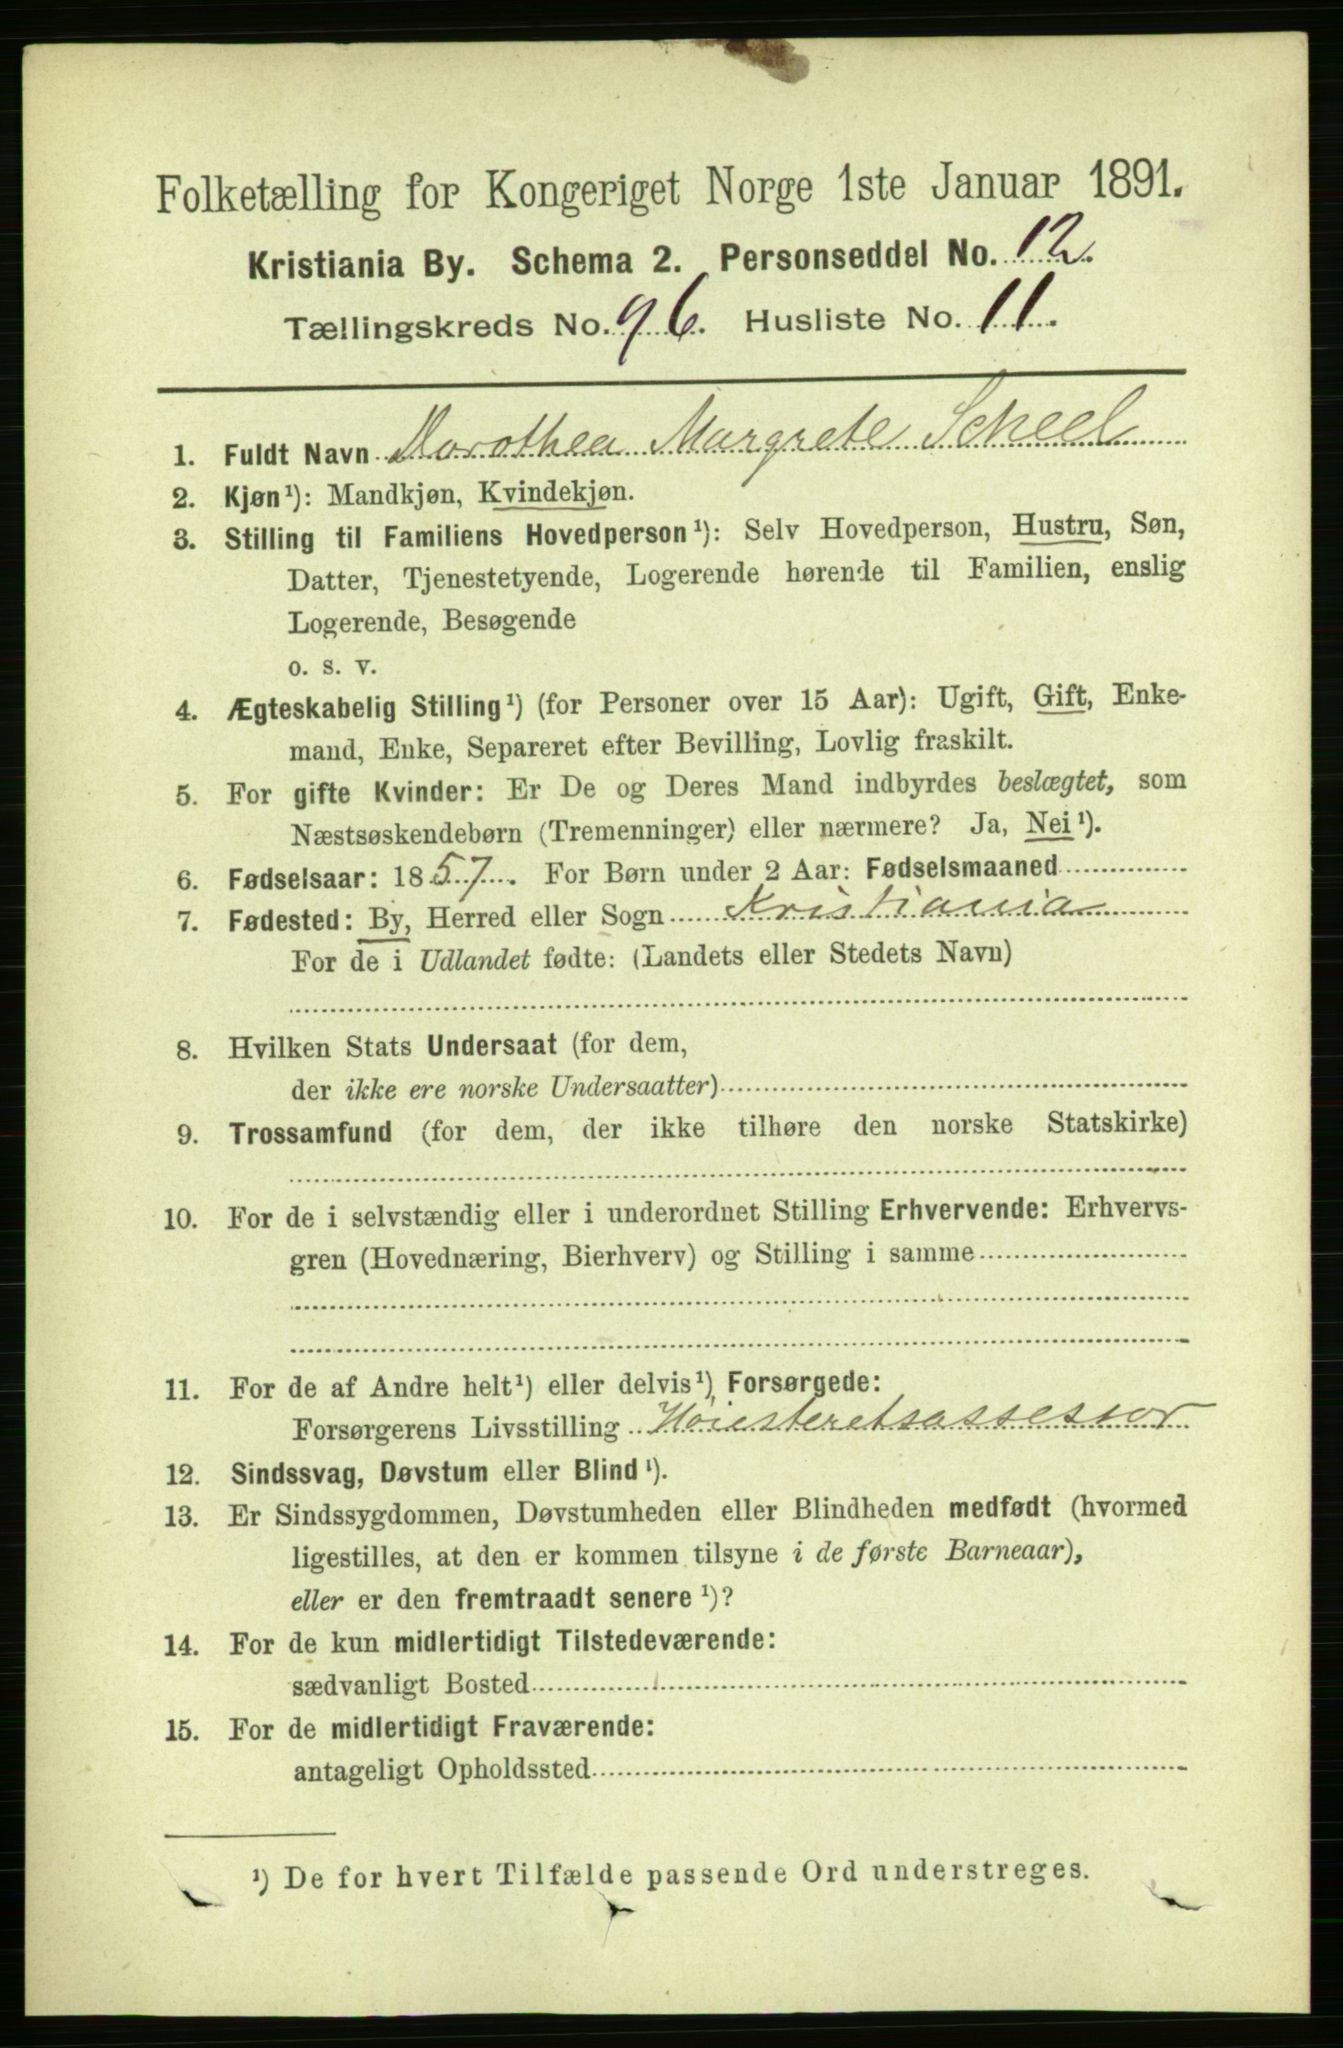 Folketælling for Kongeriget Norge 1ste Januar 1891.
Kristiania By. Schema 2. Personseddel No. 12.
Tællingskreds No. 96. Husliste No. 11.
1. Fuldt Navn Dorothea Margrete Scheel
2. Kjøn¹): Mandkjøn, Kvindekjøn.
3. Stilling til Familiens Hovedperson¹): Selv Hovedperson, Hustru, Søn,
Datter, Tjenestetyende, Logerende hørende til Familien, enslig
Logerende, Besøgende
o. s. v.
4. Ægteskabelig Stilling¹) (for Personer over 15 Aar): Ugift, Gift, Enke-
mand, Enke, Separeret efter Bevilling, Lovlig fraskilt.
5. For gifte Kvinder: Er De og Deres Mand indbyrdes beslægtet, som
Næstsøskendebørn (Tremenninger) eller nærmere? Ja, Nei¹).
6. Fødselsaar: 1857. For Børn under 2 Aar: Fødselsmaaned
7. Fødested: By, Herred eller Sogn Kristiania
For de i Udlandet fødte: (Landets eller Stedets Navn)
8. Hvilken Stats Undersaat (for dem,
der ikke ere norske Undersaatter)
9. Trossamfund (for dem, der ikke tilhøre den norske Statskirke)
10. For de i selvstændig eller i underordnet Stilling Erhvervende: Erhvervs-
gren (Hovednæring, Bierhverv) og Stilling i samme
11. For de af Andre helt¹) eller delvis¹) Forsørgede:
Forsørgerens Livsstilling Høiesteretsassessor
12. Sindssvag, Døvstum eller Blind¹).
13. Er Sindssygdommen, Døvstumheden eller Blindheden medfødt (hvormed
ligestilles, at den er kommen tilsyne i de første Barneaar),
eller er den fremtraadt senere¹)?
14. For de kun midlertidigt Tilstedeværende:
sædvanligt Bosted
15. For de midlertidigt Fraværende:
antageligt Opholdssted
¹) De for hvert Tilfælde passende Ord understreges.